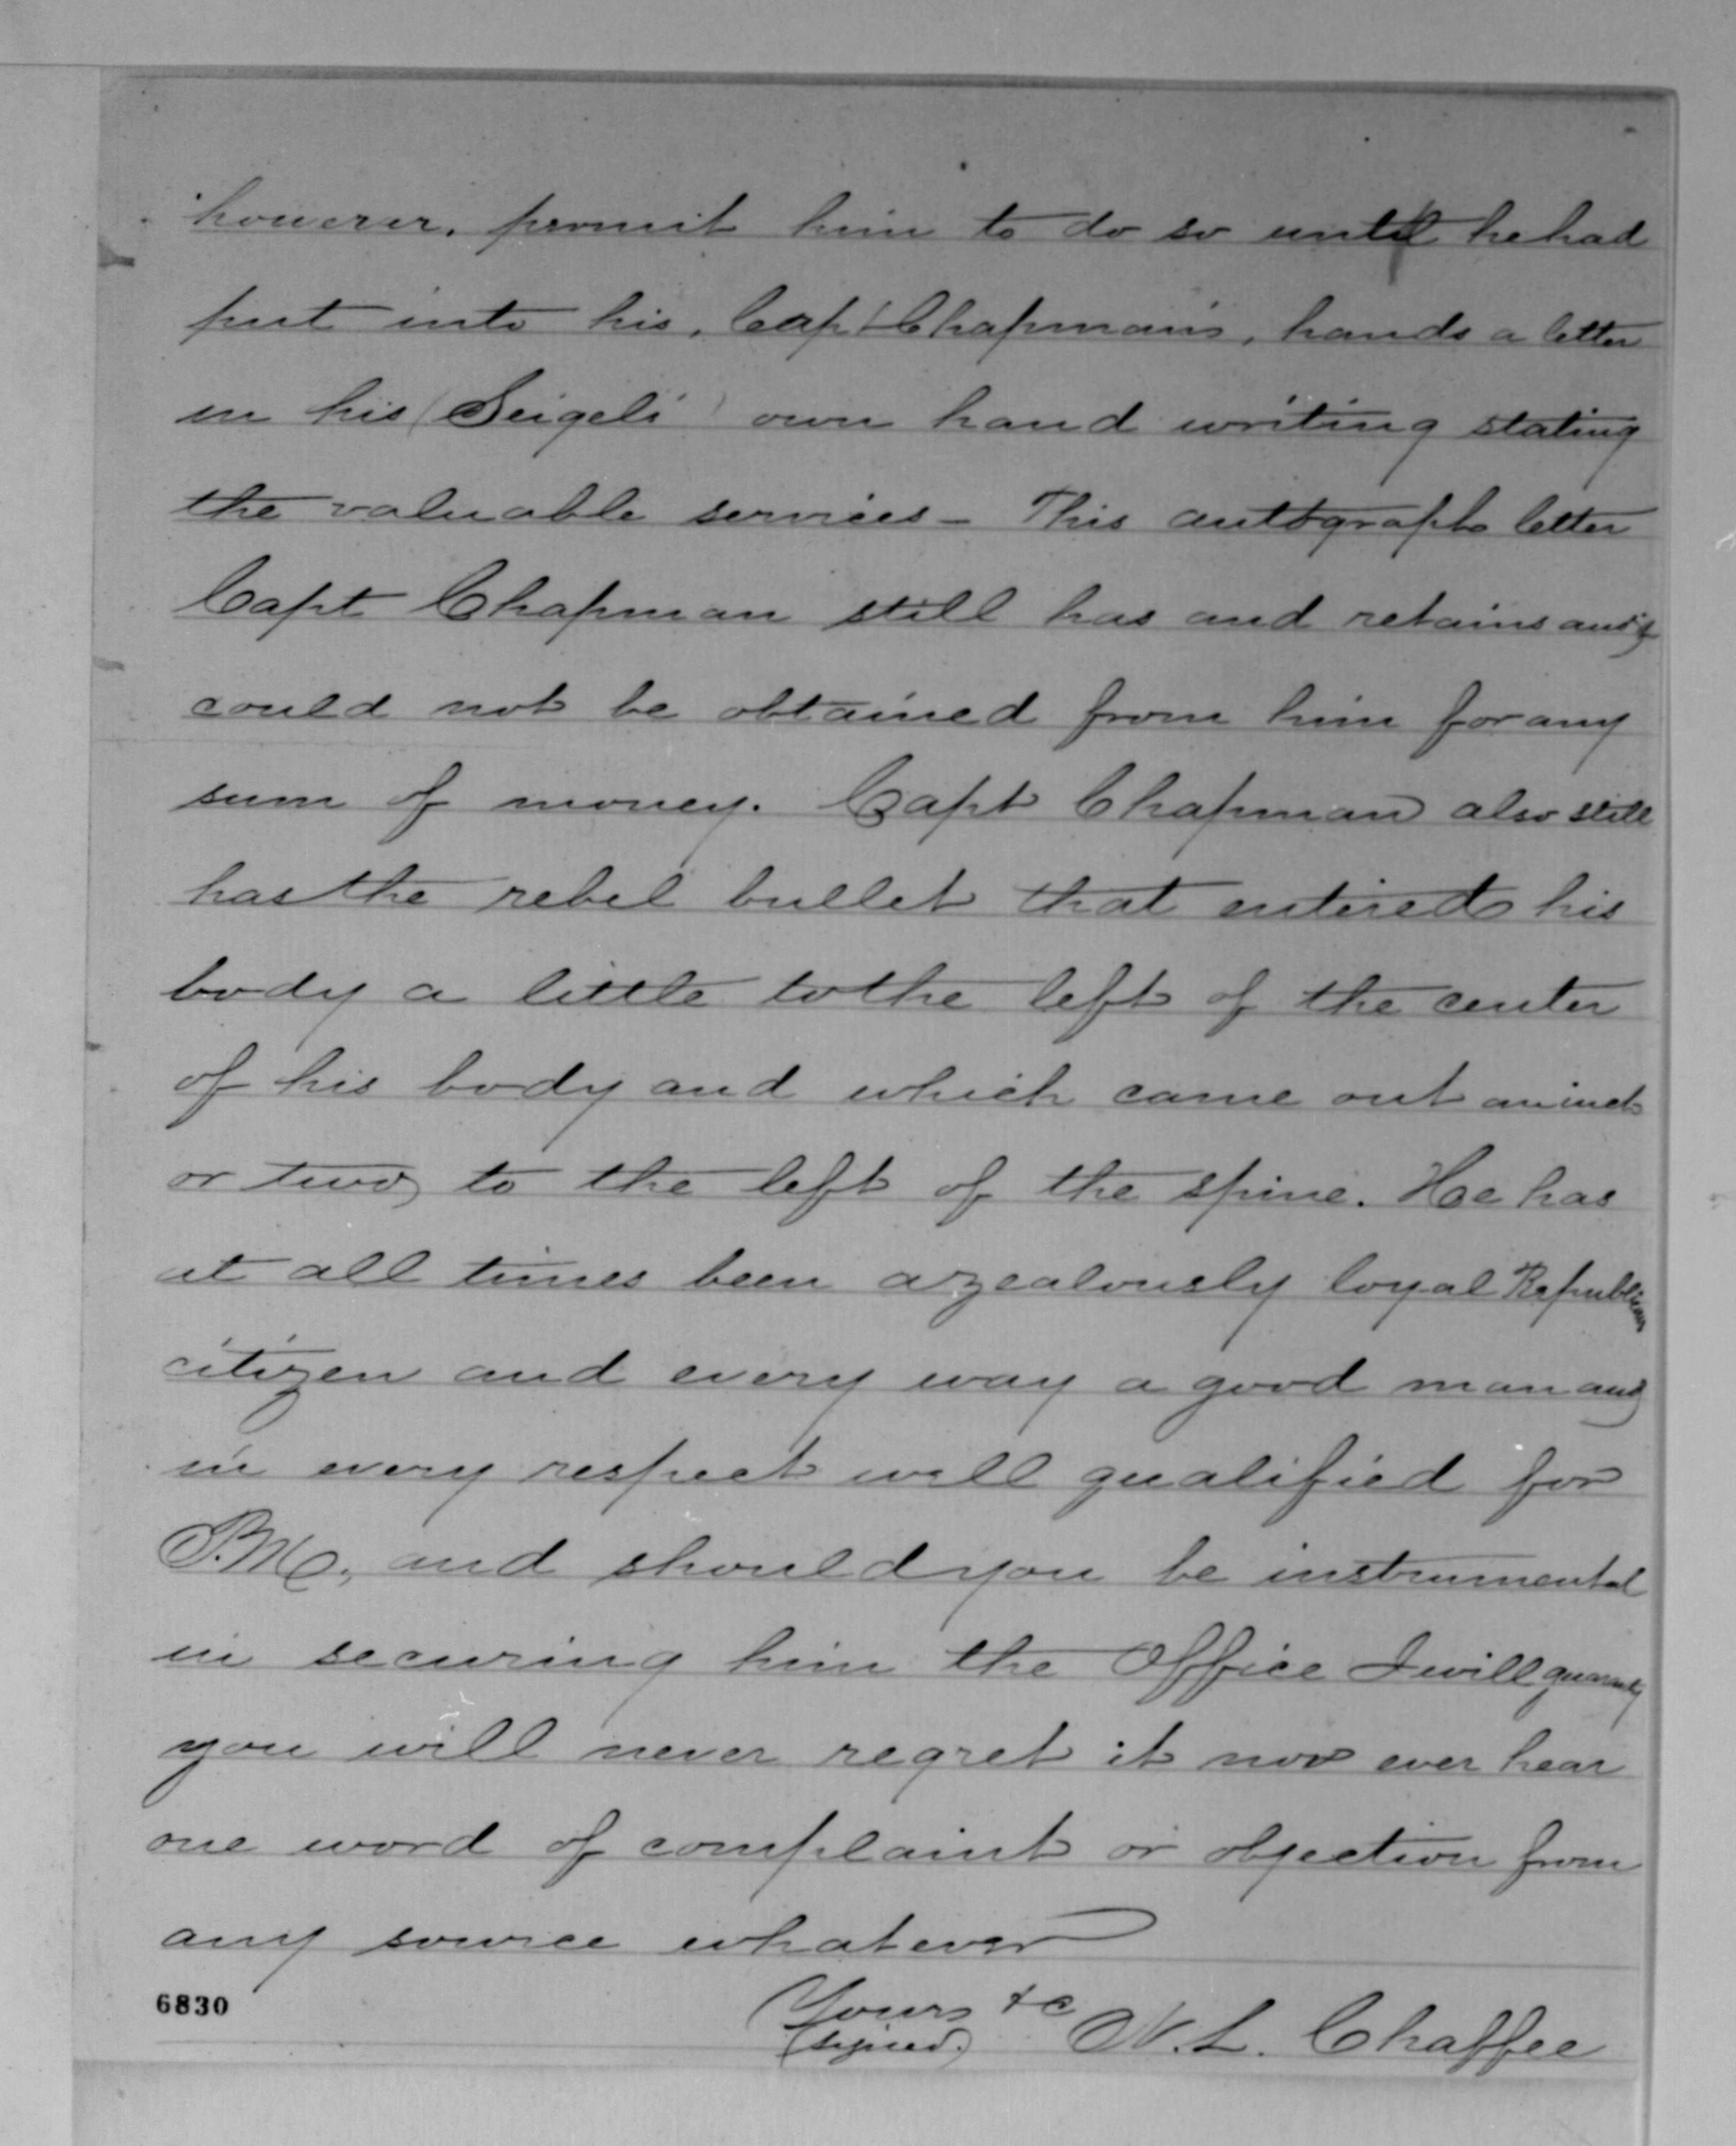 however, permit him to do so until he had
put into his, Capt Chapman's, hands a letter
in his (Seigels') own hand writing stating
the valuable services - This autograph letter
Capt Chapman still has and retains and it
could not be obtained from him for any
sum of money. Capt Chapman also still
has the rebel bullet that entered his
body a little to the left of the center
of his body and which came out an inch
or two to the left of the spine. He has
at all times been a zealously loyal Republican
citizen and every way a good man and
in every respect well qualified for
P.M., and should you be instrumental
in securing him the Office I will guaranty
you will never regret it nor ever hear
one word of complaint or objection from
any source whatever
6830
Yours &c
(signed) N. L. Chaffee